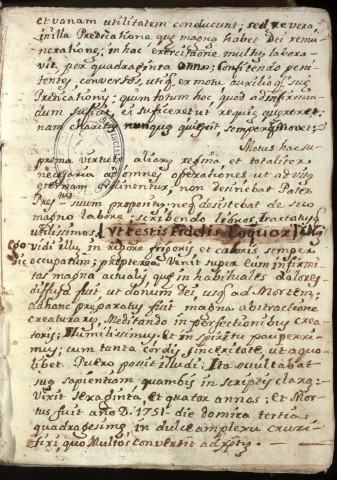 et vanam utilitatem conducunt, sed revera
in illa Predicatione que magna habet Dei remu
neratione; in hac exercitatione multu labora
vit, per quadraginta annos; Confitendo peni
tentes conversos, utiq; ex motu auxilioq; sue
Predicationy; qum totum hoc, quod ad infirman
dum suficit, ei suficeret ut requie quereret,
nam Charitas nunqua quiescit semperq; Movet;
Motus hac su
prema virtute aliaru regina et totaliter
necessaria ad omnes operationes ut ad vita
eternam destinentur, non desinebat Pater
Pres. suum propositu; neq; desistebat de suo
magno labore; scribendo libros, Tractatusq;
utilissimos. (Ut testis fidelis Loquor)
Ego vidi illu in rigore frigoris et caloris semper
occupatum; propterea Venit super eum infirmi
tas magna actualis que in habituales dolores
diffusa fuit ut donum Dei usq; ad Mortem;
ad hanc preparatus fuit magna abstractione
creaturaru, Meditando in perfectionibus crea
toris; Humilissimus, Et in Spiritu pauperri
mus; cum tanta cordis sinceritate ut a quo
libet Puero posuit illudi; Ita ocultabat
sua sapientiam quamvis in scriptis clara:
vixit sexaginta, et quator annos; et Mor
tus fuit año D. 1751 die domica tertia
quadragesime in dulce amplexu cruxi
fixi, quo Multos Convertit ad Xptū.